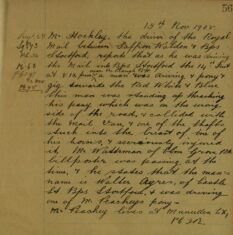 56
13th Nov 1905
Mr Hockley, the driver of the Royal
Mail between Saffron Walden & Bps
Stortford, reports that as he was driving
the Mail into Bps Stortford the 12 inst
at 8.15 pm a man was driving a pony &
gig towards the Red White & Blue
this man was leading up thashing
his pony which was on the wrong
side of the road, & collided with
the Mail Van, & one of the shafts
stuck into the breast of one of
his horses, & seriously injured
it Mr Wattsman of Elm Grove
billposter was passing at the
time, & he states that the mans
name is Walter Ayres, of Castle
St Bps Stortford, & was driving
one of Mr Peacheys pony.
Mr Peachey lives at Manuden